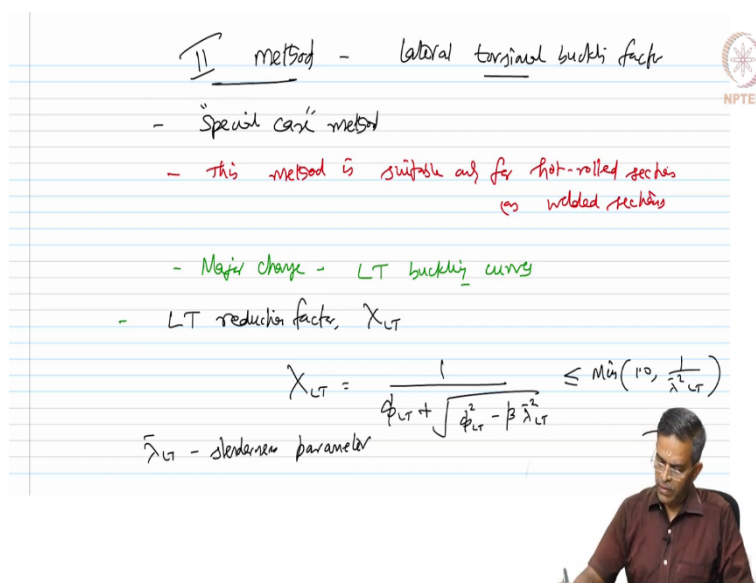 II method - lateral torsional buckli factor
NPTE
- "Special case" method
- This method is suitable only for hot-rolled sections
(or) welded sections
- Major change - LT buckling curves
- LT reduction factor, χLT
χLT = 1 / (ϕLT + √(ϕ²LT - β λ̄²LT)) ≤ Min(1.0, 1/λ̄²LT)
λ̄LT - slenderness parameter